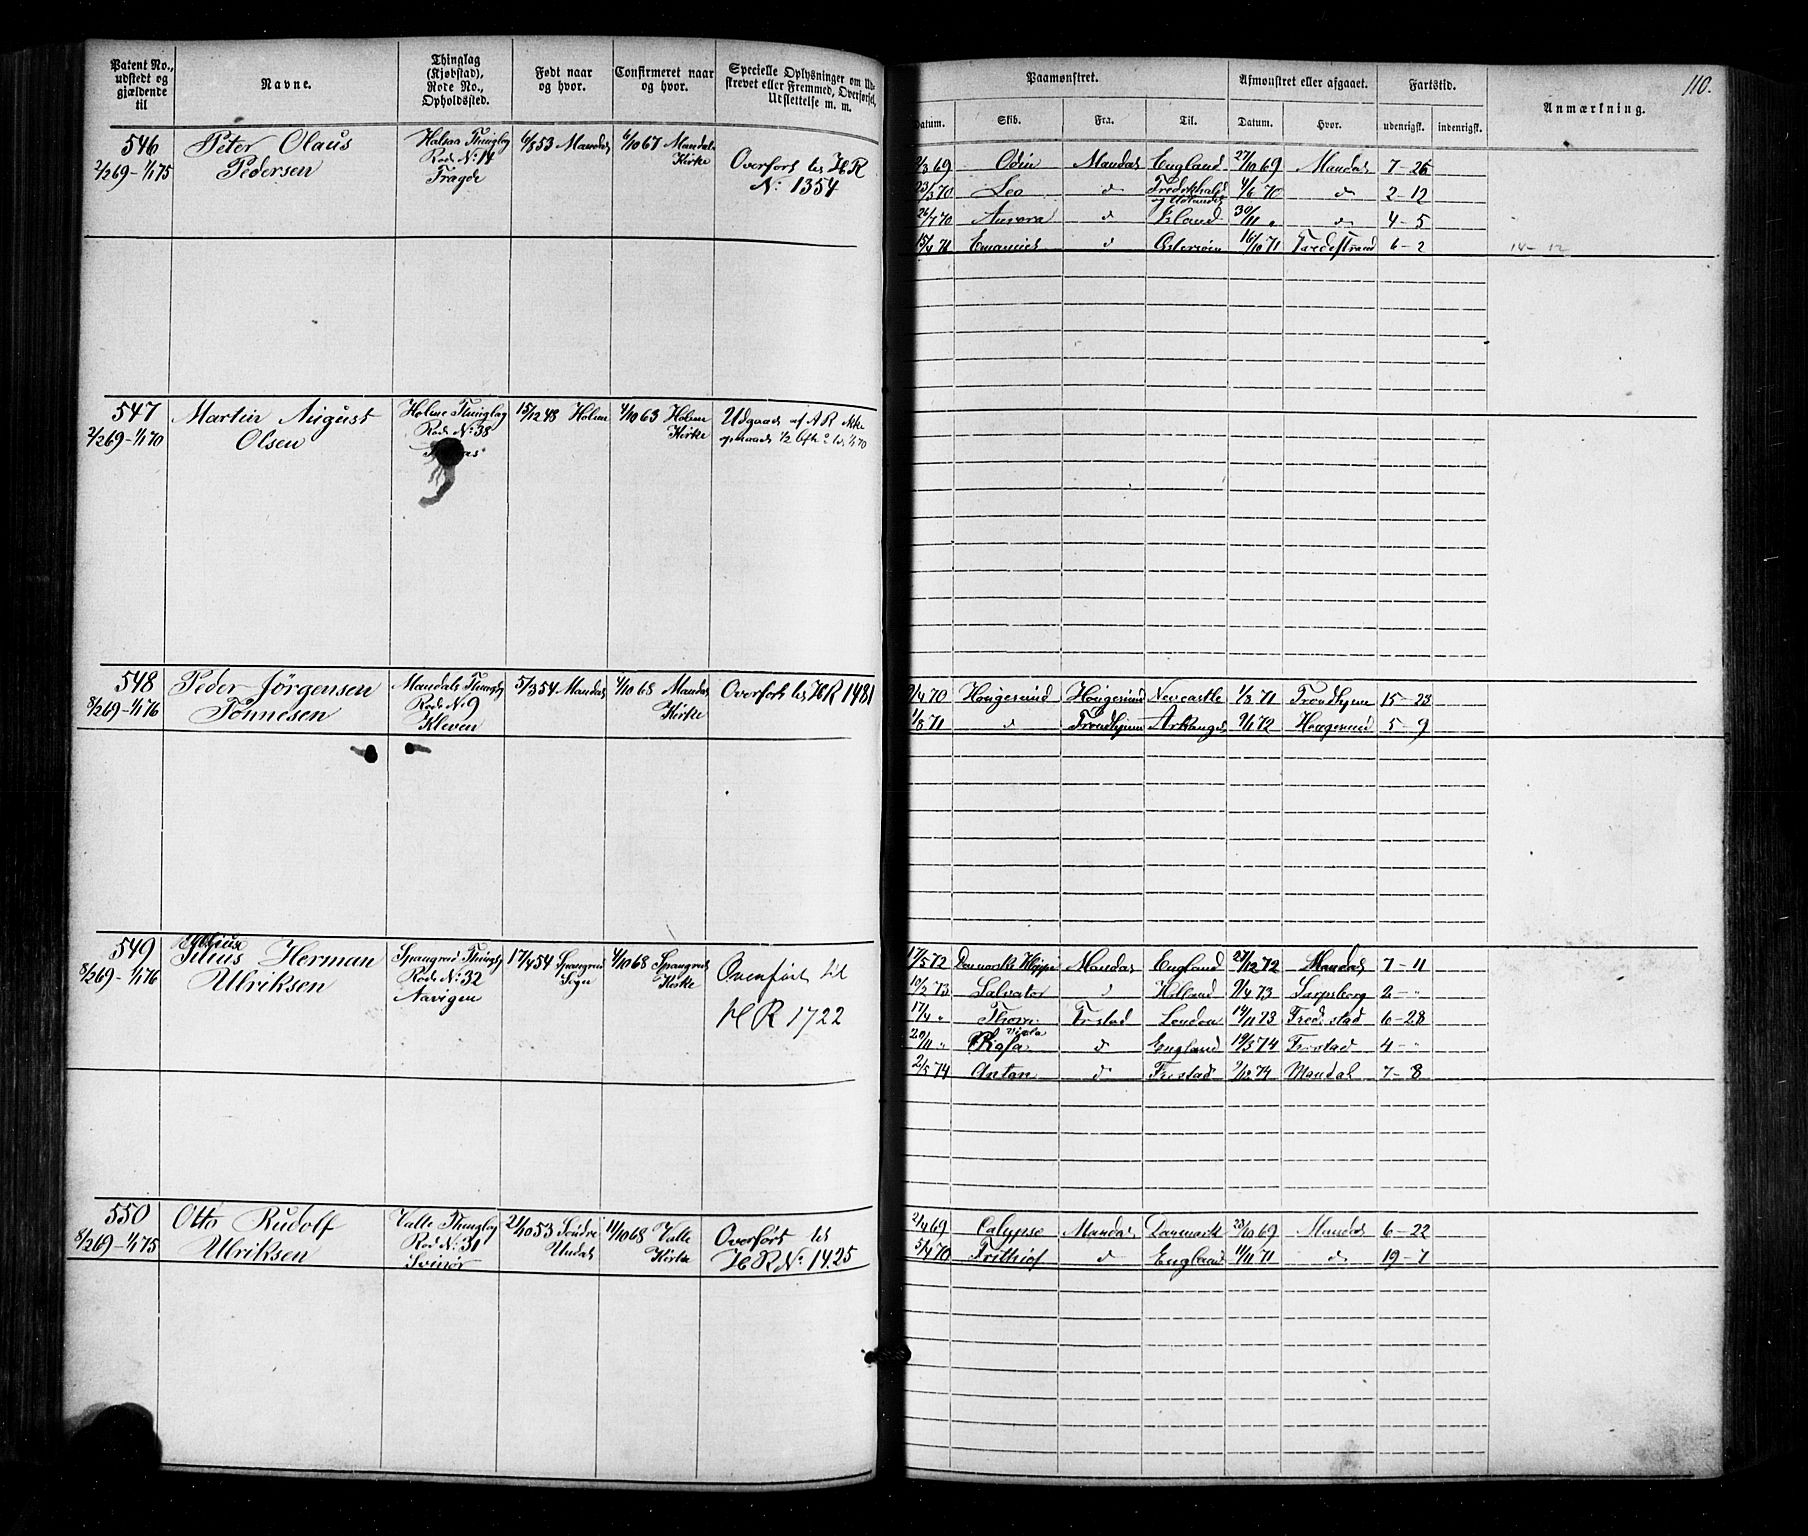 110.
Patent No., udstedt og gjældende til
Navne.
Thinglag (Kjøbstad), Rode No., Opholdssted.
Født naar og hvor.
Confirmeret naar og hvor.
Specielle Oplysninger om Ud-
skrevet eller Fremmed, Overførsel,
Udslettelse m. m.
Paamønstret.
Afmønstret eller afgaaet.
Fartstid.
Anmærkning.
Datum. Skib. Fra. Til. Datum. Hvor. udenrigsk. indenrigsk.
546
2/2 69 - 1/1 75
Peter Olaus
Pedersen
Halsaa Thinglag
Rode No: 14
Tragde
6/8 53 Mandal
6/10 67 Mandals
Kirke
Overført til HR
No: 1354
2/3 69 Odin Mandal England 27/10 69 Mandal 7-25
23/3 70 Leo d Frederikhald 4/6 70 d 2-12
og Udlandet
26/7 70 Aurora d Island 30/11 " d 4-5
15/4 71 Emanuel d Østersøen 16/10 71 Tvedestrand 6-2 14-12
547
2/2 69 - 1/1 70
Martin August
Olsen
Holme Thinglag
Rode No: 38
15/12 48 Holum
4/10 63 Holum
Kirke
Udgaaet af AR ikke
548
8/2 69 - 1/1 76
Peder Jörgensen
Tönnesen
Mandals Thinglag
Rode No 9
Kleven
5/3 54 Mandal
4/10 68 Mandal
Kirke
Overført til HR 1481
/4 70 Hougesund Hougesund Newcastle 1/3 71 Trondhjem 15-23
1/6 71 d Trondhjem Arkhangel 9/1 72 Hougesund 5-9
549
8/2 69 - 1/1 76
Julius Herman
Ulriksen
Spangreid Thinglag
Rode No: 32
Navigen
17/4 54 Spangreid
Sogn
4/10 68 Spangreid
Kirke
Overført til
HR 1722
17/5 72 Mandal England 27/12 72 Mandal 7-11
10/2 73 Salvator d Holland 9/4 73 Sarpsborg 2-"
17/4 " Thor Frstad London 14/11 73 Fred.stad 6-28
20/11 " Rosa d England 19/3 74 Frstad 4-"
2/5 74 Anton d Frestad 9/12 74 Mandal 7-8
550
8/2 69 - 1/1 75
Otto Rudolf
Ulriksen
Valle Thinglag
Rod No: 31
Svinör
21/10 53 Söndre
Undal
11/10 68 Valle
Kirke
Overført til
HR No: 1425
2/4 69 Calypso Mandal Danmark 23/10 69 Mandal 6-22
5/4 70 Frithiof d England 11/11 71 d 19-7